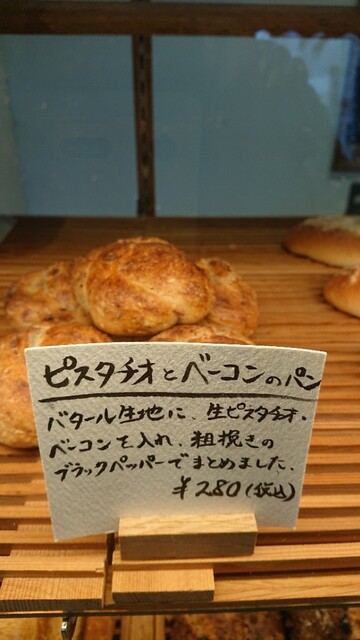 ピスタチオとベーコンのパン
バタール生地に、生ピスタチオ・
ベーコンを入れ、粗挽きの
ブラックペッパーでまとめました。
¥280(税込)